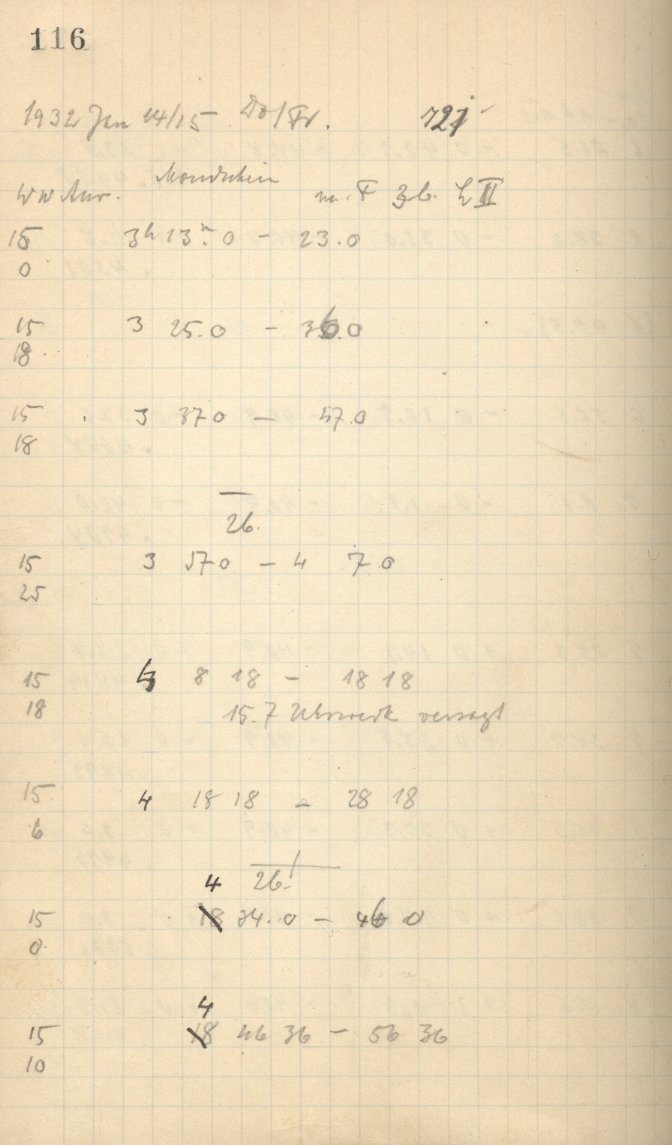 116
1932 Jan 14/15 Do/Fr. 727
WW Aur. Mondschein m. F 3b. L II
15 3h 13m.0 - 23.0
0
15 3 25.0 - 36.0
18
15 3 37 0 - 57.0
18
26.
15 3 57 0 - 4 7 0
25
15 4 8 18 - 18 18
18 15.7 Uhrwerk versagt
15 4 18 18 - 28 18
6
4 26.
15 18 34.0 - 46 0
0
4
15 18 46 36 - 56 36
10